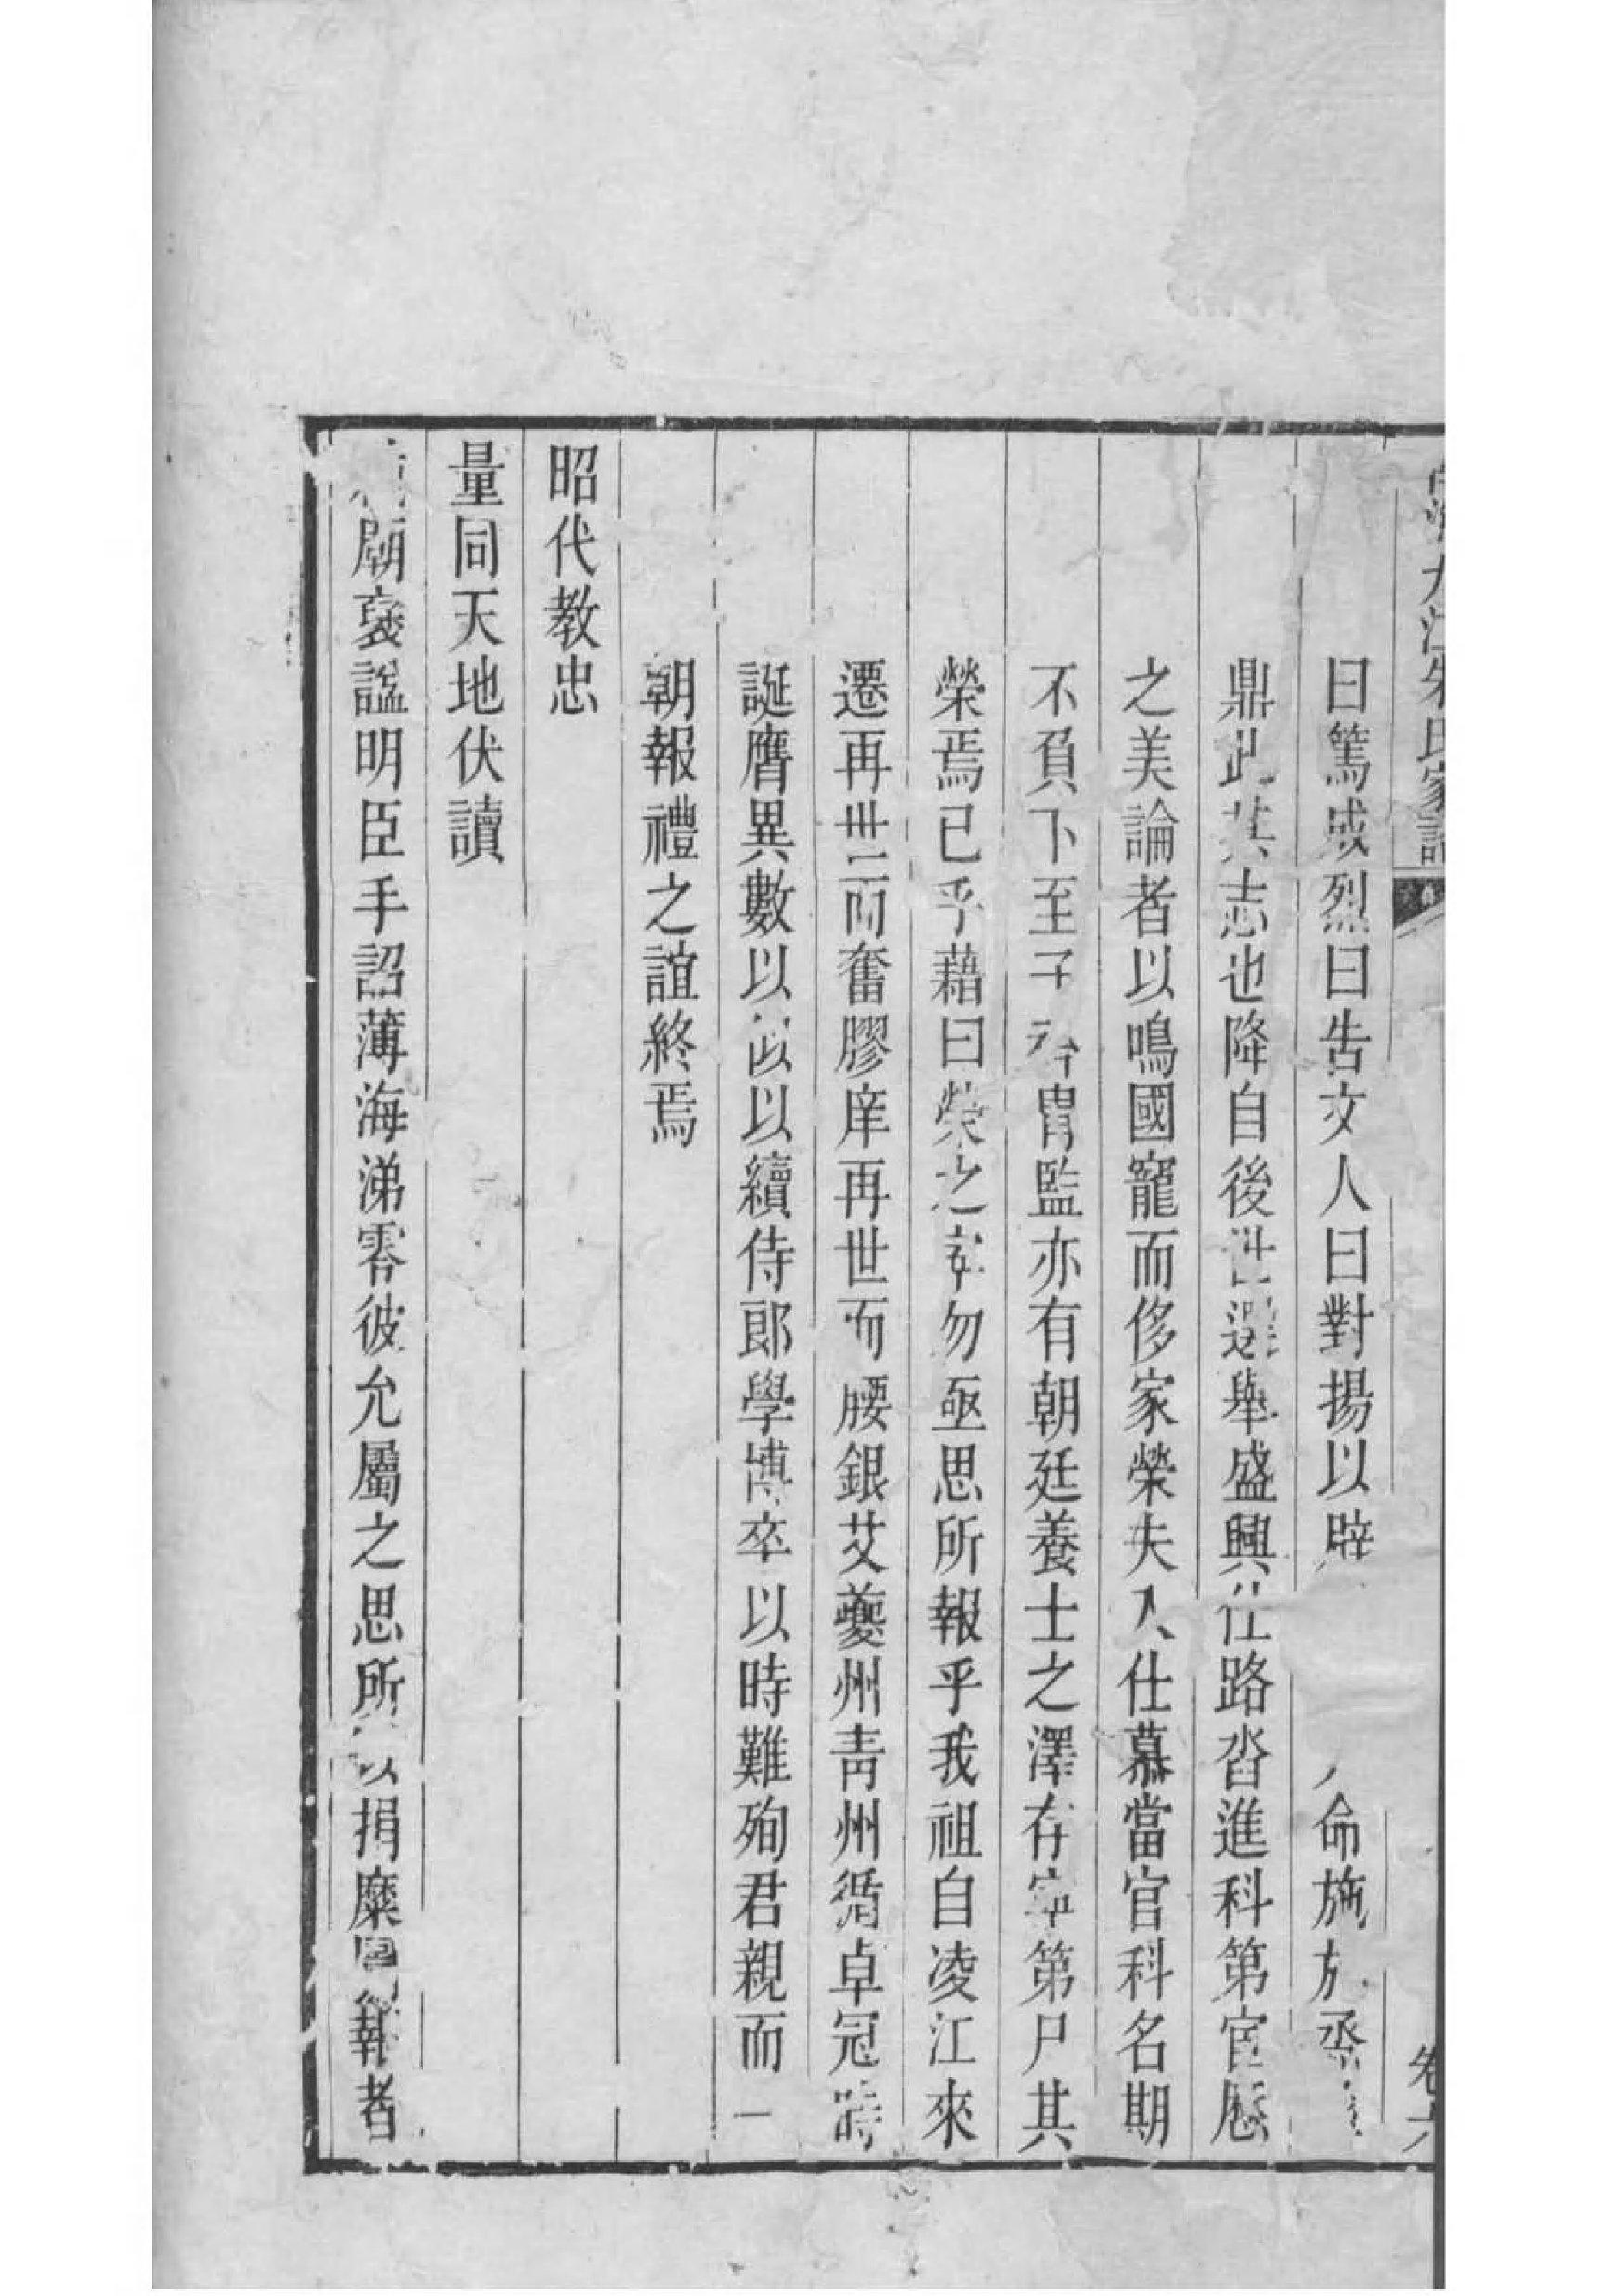 南海九江朱氏家譜
卷六
曰篤成烈曰告文人曰對揚以辟命施于烝
鼎此其志也降自後世選舉盛興仕路沓進科第宦歷
之美論者以鳴國寵而侈家榮夫人仕慕當官科名期
不負下至子衿胄監亦有朝廷養士之澤存寧第尸其
榮焉已乎藉曰榮之寧勿亟思所報乎我祖自凌江來
遷再世而奮膠庠再世而腰銀艾夔州青州循卓冠時
誕膺異數以似以續侍郎學博卒以時難殉君親而一
朝報禮之誼終焉
昭代教忠
量同天地伏讀
廟褒諡明臣手詔薄海涕零彼允屬之思所以捐糜圖報者